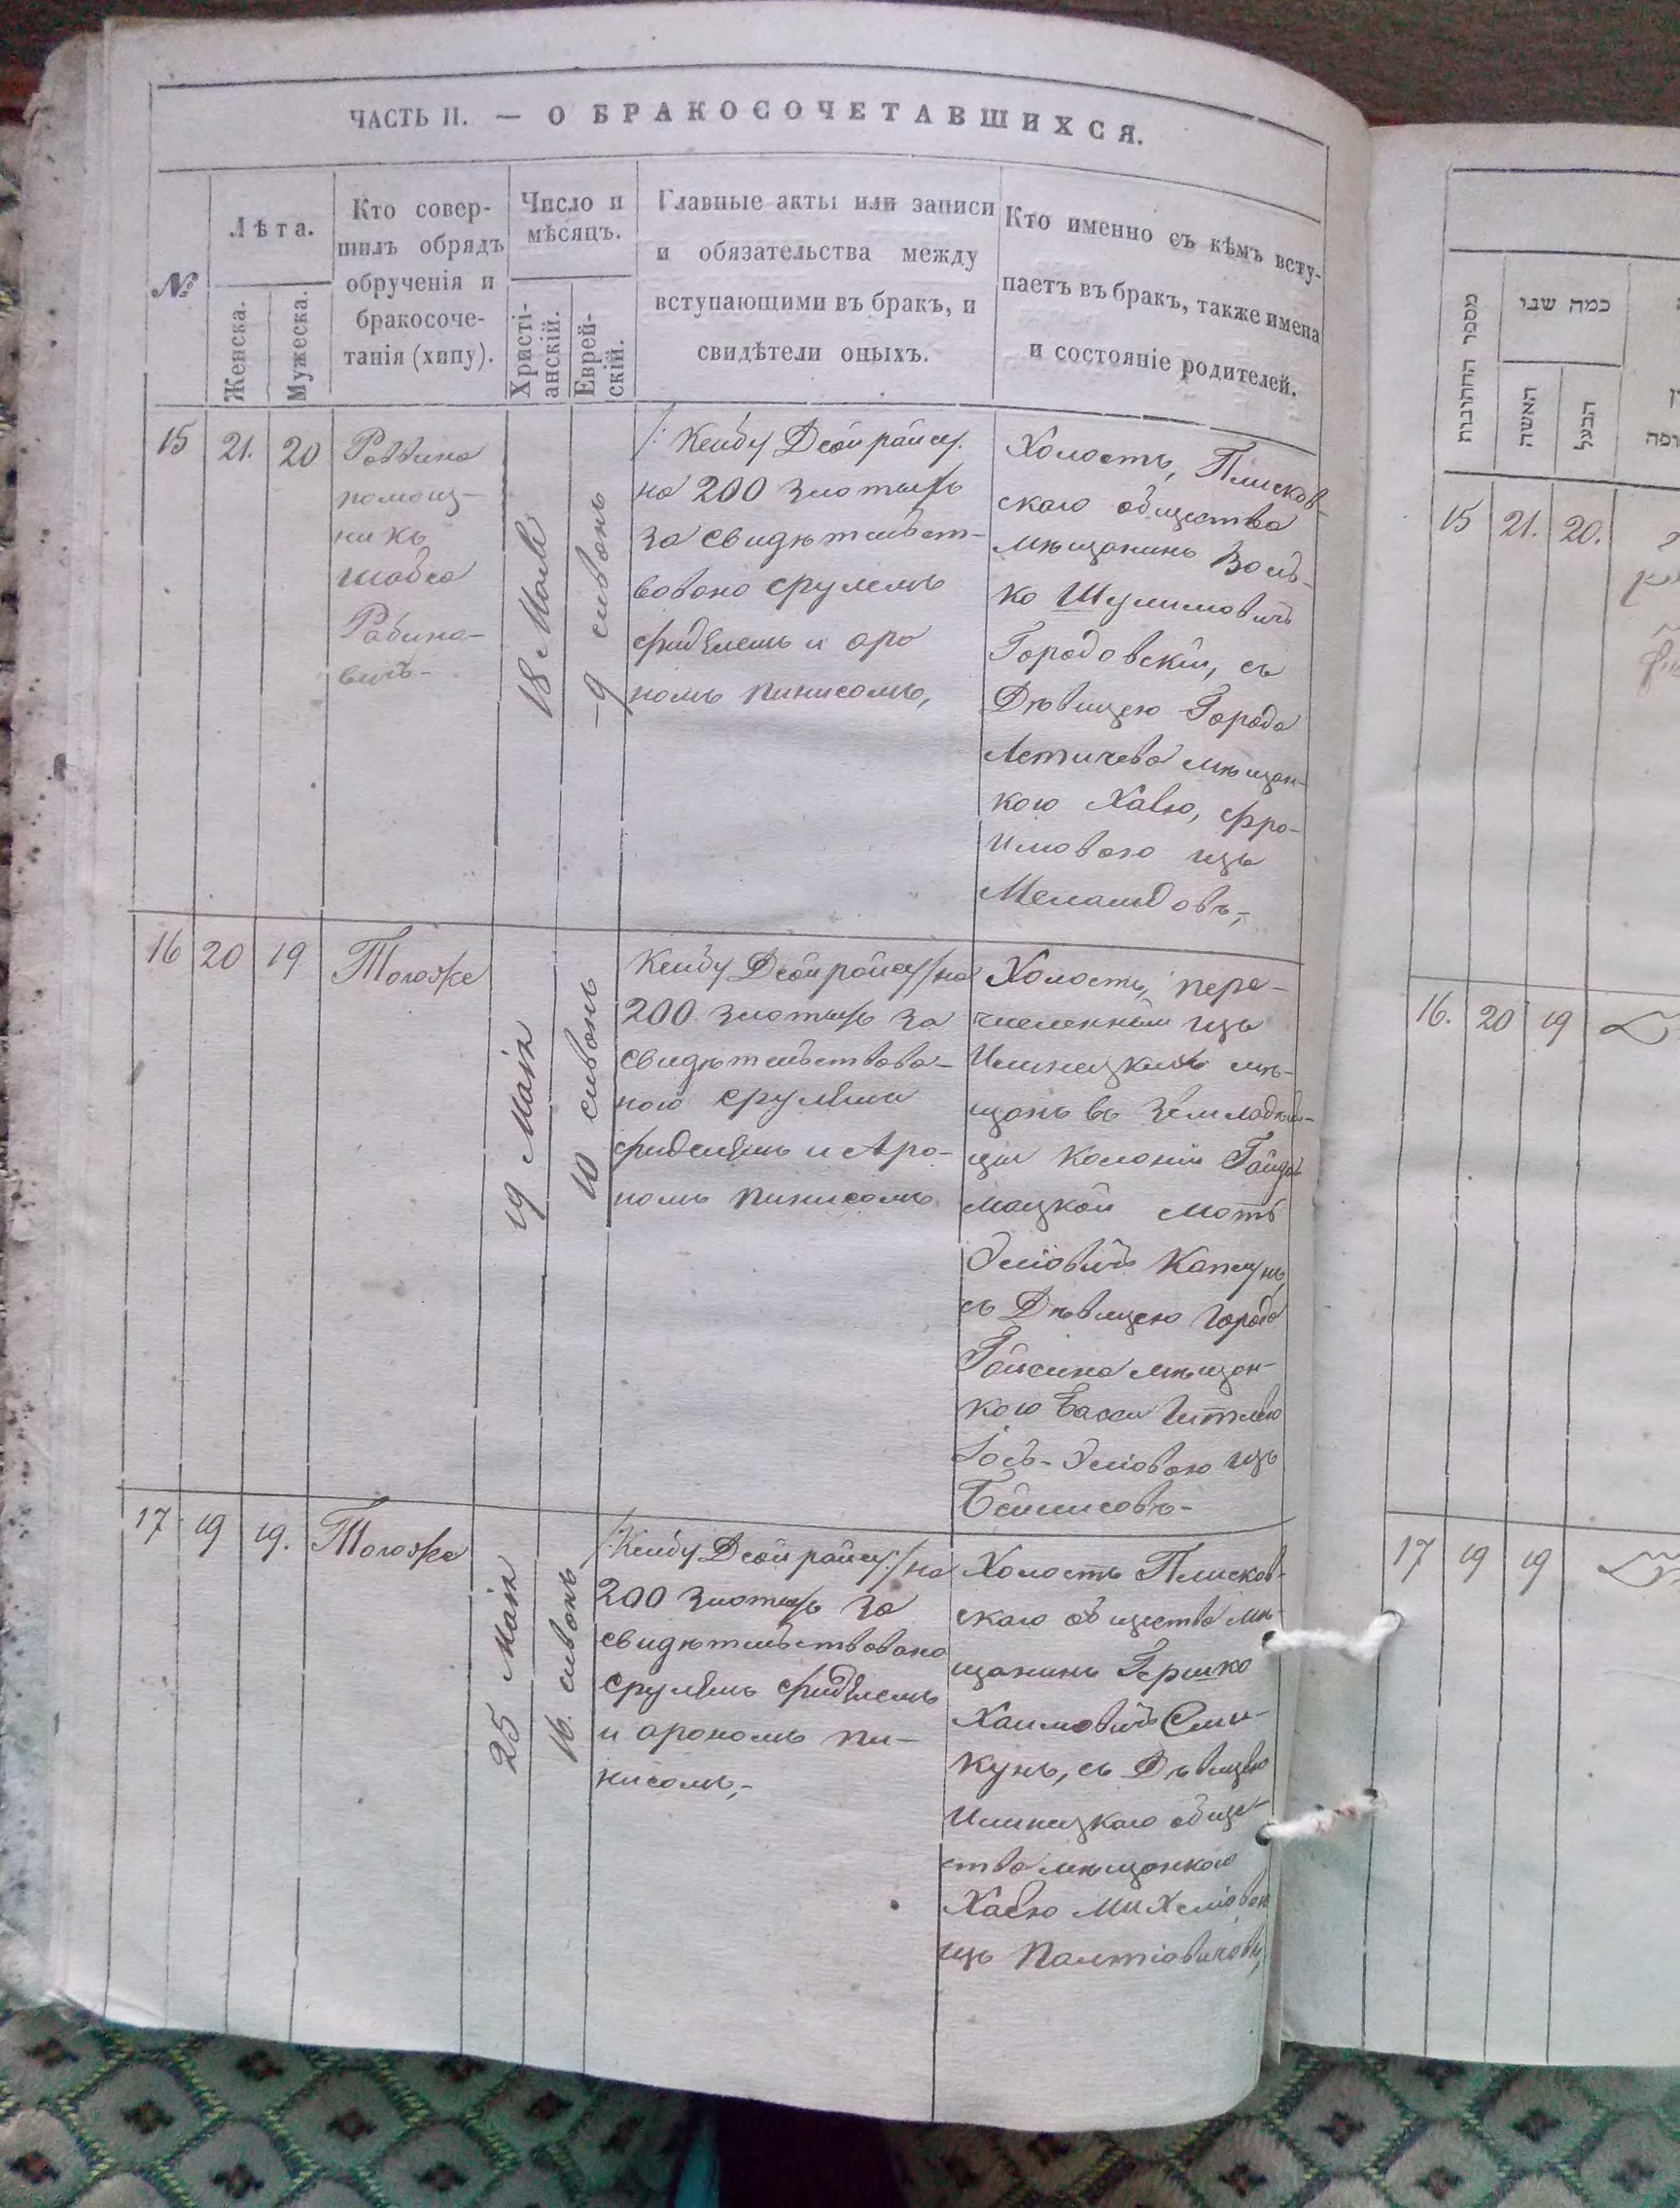 ЧАСТЬ II. — О БРАКОСОЧЕТАВШИХСЯ.
№
Лѣта.
Женска.
Мужеска.
Кто совер-
шилъ обрядъ
обрученія и
бракосоче-
танія (хипу).
Число и
мѣсяцъ.
Христі-
анскій.
Еврей-
скій.
Главные акты или записи
и обязательства между
вступающими въ бракъ, и
свидѣтели оныхъ.
Кто именно съ кѣмъ всту-
паетъ въ бракъ, также имена
и состояніе родителей.
15
21.
20
Раввина
помощ-
никъ
Шабса
Рабино-
вичъ-
18 Мая
9 сивонъ
на 200 злотыхъ
за свидѣтельст-
вовано Срулемъ
Фиделемъ и Аро
номъ Пинисомъ,
Холостъ, Плисков-
скаго общества
мѣщанинъ Воль-
ко Шулимовичъ
Городовскій, съ
Дѣвицею Города
Летичева мѣщан-
кою Хавою, Фро-
имовою изъ
Меламдовъ,-
16
20
19
Тогоже
19 Маія
10 сивонъ
200 злотыхъ за
свидѣтельствова-
ного Срулемъ
Фиделемъ и Аро-
номъ Пинисомъ
Холостъ, пере-
численный изъ
Илинецкихъ мѣ-
щанъ въ Земледѣль-
цы Колоніи Гайда
мацкой Мотъ
съ Дѣвицею Города
Гайсина мѣщан-
кою Басси Гитлею
изъ
Беймисовъ-
17
19
19.
Тогоже
25 Маія
16. сивонъ
200 злотыхъ За
свидѣтельствовано
Срулемъ Фиделемъ
и Арономъ Пи-
нисомъ,-
Холостъ Плисков-
скаго общества мѣ-
щанинъ Гершко
Хаимовичъ Сми-
кунъ, съ Дѣвицею
Илинецкаго обще-
ства мѣщанкою
Хавою Михелiовою
изъ Палтiовичовъ,
מספר החתונות
כמה שני
האשה
הבעל
15
21.
20.
16.
20
19
17
19
19